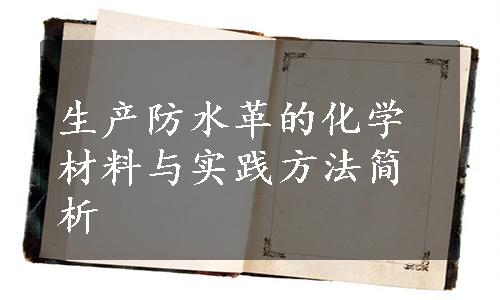 生产防水革的化学
材料与实践方法简
析